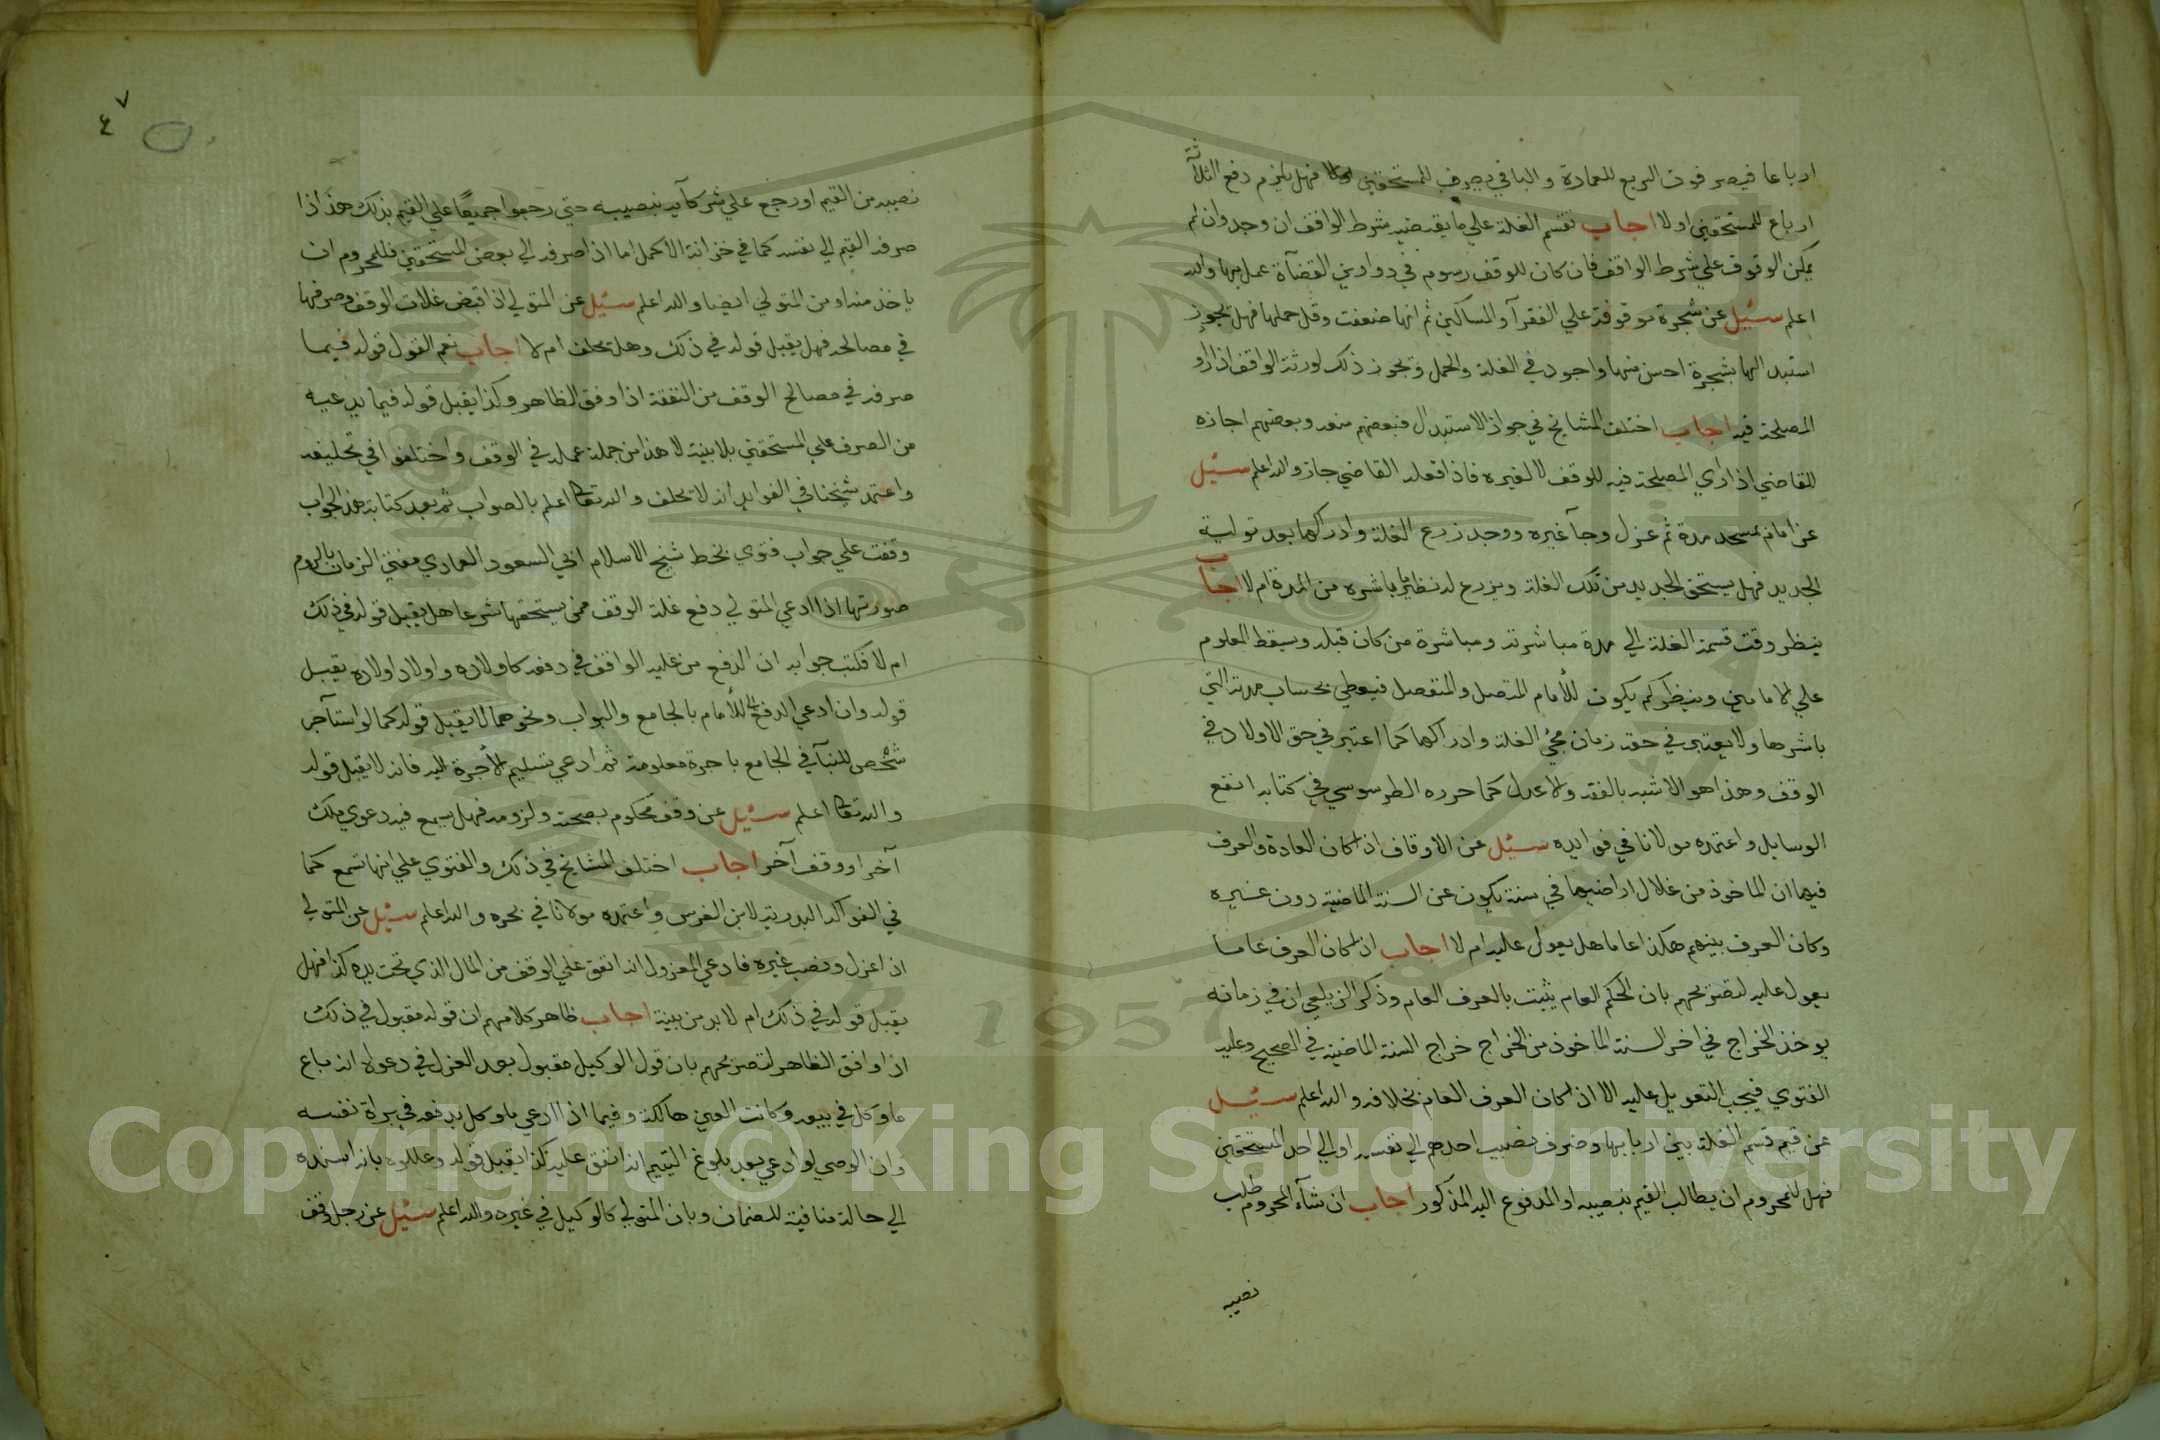 ارباعا فيصرفون الربع للعمارة والباقي يصرف للمستحقين فهل يلزم دفع الثلاثة
ارباع للمستحقين اولا اجاب تقسم الغلة علي ما يقتضيه شرط الواقف ان وجد وان لم
يمكن الوقوف علي شرط الواقف فان كان للوقف رسوم في دواوين القضآة عمل بها والله
اعلم سئيل عن شجرة موقوفة علي الفقرآ والمساكين ثم انها ضعفت وقل حملها فهل يجوز
استبدالها بشجرة احسن منها واجود في الغلة والحمل ويجوز ذلك لورثة الواقف اذا راو
المصلحة فيه اجاب اختلف المشايخ في جواز الاستبدال فبعضهم منعه وبعضهم اجازه
للقاضي اذا راي المصلحة فيه للوقف لا لغيره فاذا فعله القاضي جاز والله اعلم سئيل
عن امام بمسجد مدة ثم عزل وجآ غيره ووجد زرع الغلة وادراكها بعد تولية
الجديد فهل يستحق الجديد من تلك الغلة ويزرع له نظير ما باشره من المدة ام لا اجاب
ينظر وقت قسمة الغلة الي مدة مباشرته ومباشرة من كان قبله وبسقط المعلوم
علي الامامين وينظر كم يكون للأمام المتصل والمنفصل فيعطي بحساب مدته التي
باشرها ولا يعتبر في حقه زمان مجئ الغلة وادراكها كما اعتبر في حق الاولاد في
الوقف وهذا هو الاشبه بالفقه والاعدل كما حرره الطرسوسي في كتابه انفع
الوسايل واعتمده مولانا في فوايده سئيل عن الاوقاف اذا كان العادة والعرف
فيها ان الماخوذ من غلال اراضيها في سنة يكون عن السنة الماضية دون غيره
وكان العرف بينهم هكذا عاما هل يعول عليه ام لا اجاب اذا كان العرف عاما
يعول عليه لتصريحهم بان الحكم العام يثبت بالعرف العام وذكر الزيلعي ان في زمانه
يوخذ الخراج في اخر السنة الماخوذ من الخراج خراج السنة الماضية في الصحيح وعليه
الفتوي فيجب التعويل عليه الا اذا كان العرف العام بخلافه والله اعلم سئيل
عن قيم قسم الغلة بين اربابها وصرف نصيب احدهم الي نفسه او الي احد المستحقين
فهل للمحروم ان يطالب القيم بنصيبه او المدفوع اليه المذكور اجاب ان شآء المحروم طلب
نصيبه
٤٧
نصيبه من القيم او رجع علي شركآيه بنصيبه حتي رجعوا جميعًا علي القيم بذلك هذا اذا
صرفه القيم الي نفسه كما في خزانة الاكمل اما اذا صرفه الي بعض المستحقين فللمحروم ان
ياخذ منه او من المتولي ايضا والله اعلم سئيل عن المتولي اذا قبض غلات الوقف وصرفها
في مصالحه فهل يقبل قوله في ذلك وهل يحلف ام لا اجاب نعم القول قوله فيما
صرفه في مصالح الوقف من النفقة اذا وفق الظاهر وكذا يقبل قوله فيما يدعيه
من الصرف علي المستحقين بلا بينة لا هذا من جملة عمله في الوقف واختلفوا في تحليفه
واعتمد شيخنا في الفوايد انه لا يحلف والله تعا اعلم بالصواب ثم بعد كتابة هذا الجواب
وقفت علي جواب فتوي بخط شيخ الاسلام ابي السعود العمادي مفتي الزمان بالروم
صورتها اذا ادعي المتولي دفع غلة الوقف ممن يستحقها شرعا هل يقبل قوله في ذلك
ام لا فكتب جوابه ان الدفع من عليه الواقف في دفعه كاولاده واولاد اولاده يقبل
قوله وان ادعي الدفع الي للأمام بالجامع والبواب ونحوهما لا يقبل قوله كما لو استآجر
شخص للبنآ في الجامع باجرة معلومة ثم ادعي تسليم الأجرة اليه فانه لا يقبل قوله
والله تعا اعلم سئيل عن وقف محكوم بصحته ولزومه فهل يسمع فيه دعوي ملك
آخر او وقف آخر اجاب اختلف المشايخ في ذلك والفتوي علي انها تسمع كما
في الفواكه البدرية لابن الغرس واعتمده مولانا في بحره والله اعلم سئيل عن المتولي
اذا عزل ونصب غيره فادعي المعزول انه انفق علي الوقف من المال الذي تحت يده كذا فهل
يقبل قوله في ذلك ام لا بد من بينة اجاب ظاهر كلامهم ان قوله مقبول في ذلك
اذا وافق الظاهر لتصريحهم بان قول الوكيل مقبول بعد العزل في دعواه انه باع
ما وكل في بيعه وكانت العين هالكة وفيما اذا ادعي ما وكل بدفعه في براة نفسه
وان الوصي لو ادعي بعد بلوغ اليتيم انه انفق عليه كذا يقبل قوله وعللوه بانه اسنده
الي حالة منافية للضمان وبان المتولي كالوكيل في غيره والله اعلم سئيل عن رجل وقف
Copyright © King Saud University
1957